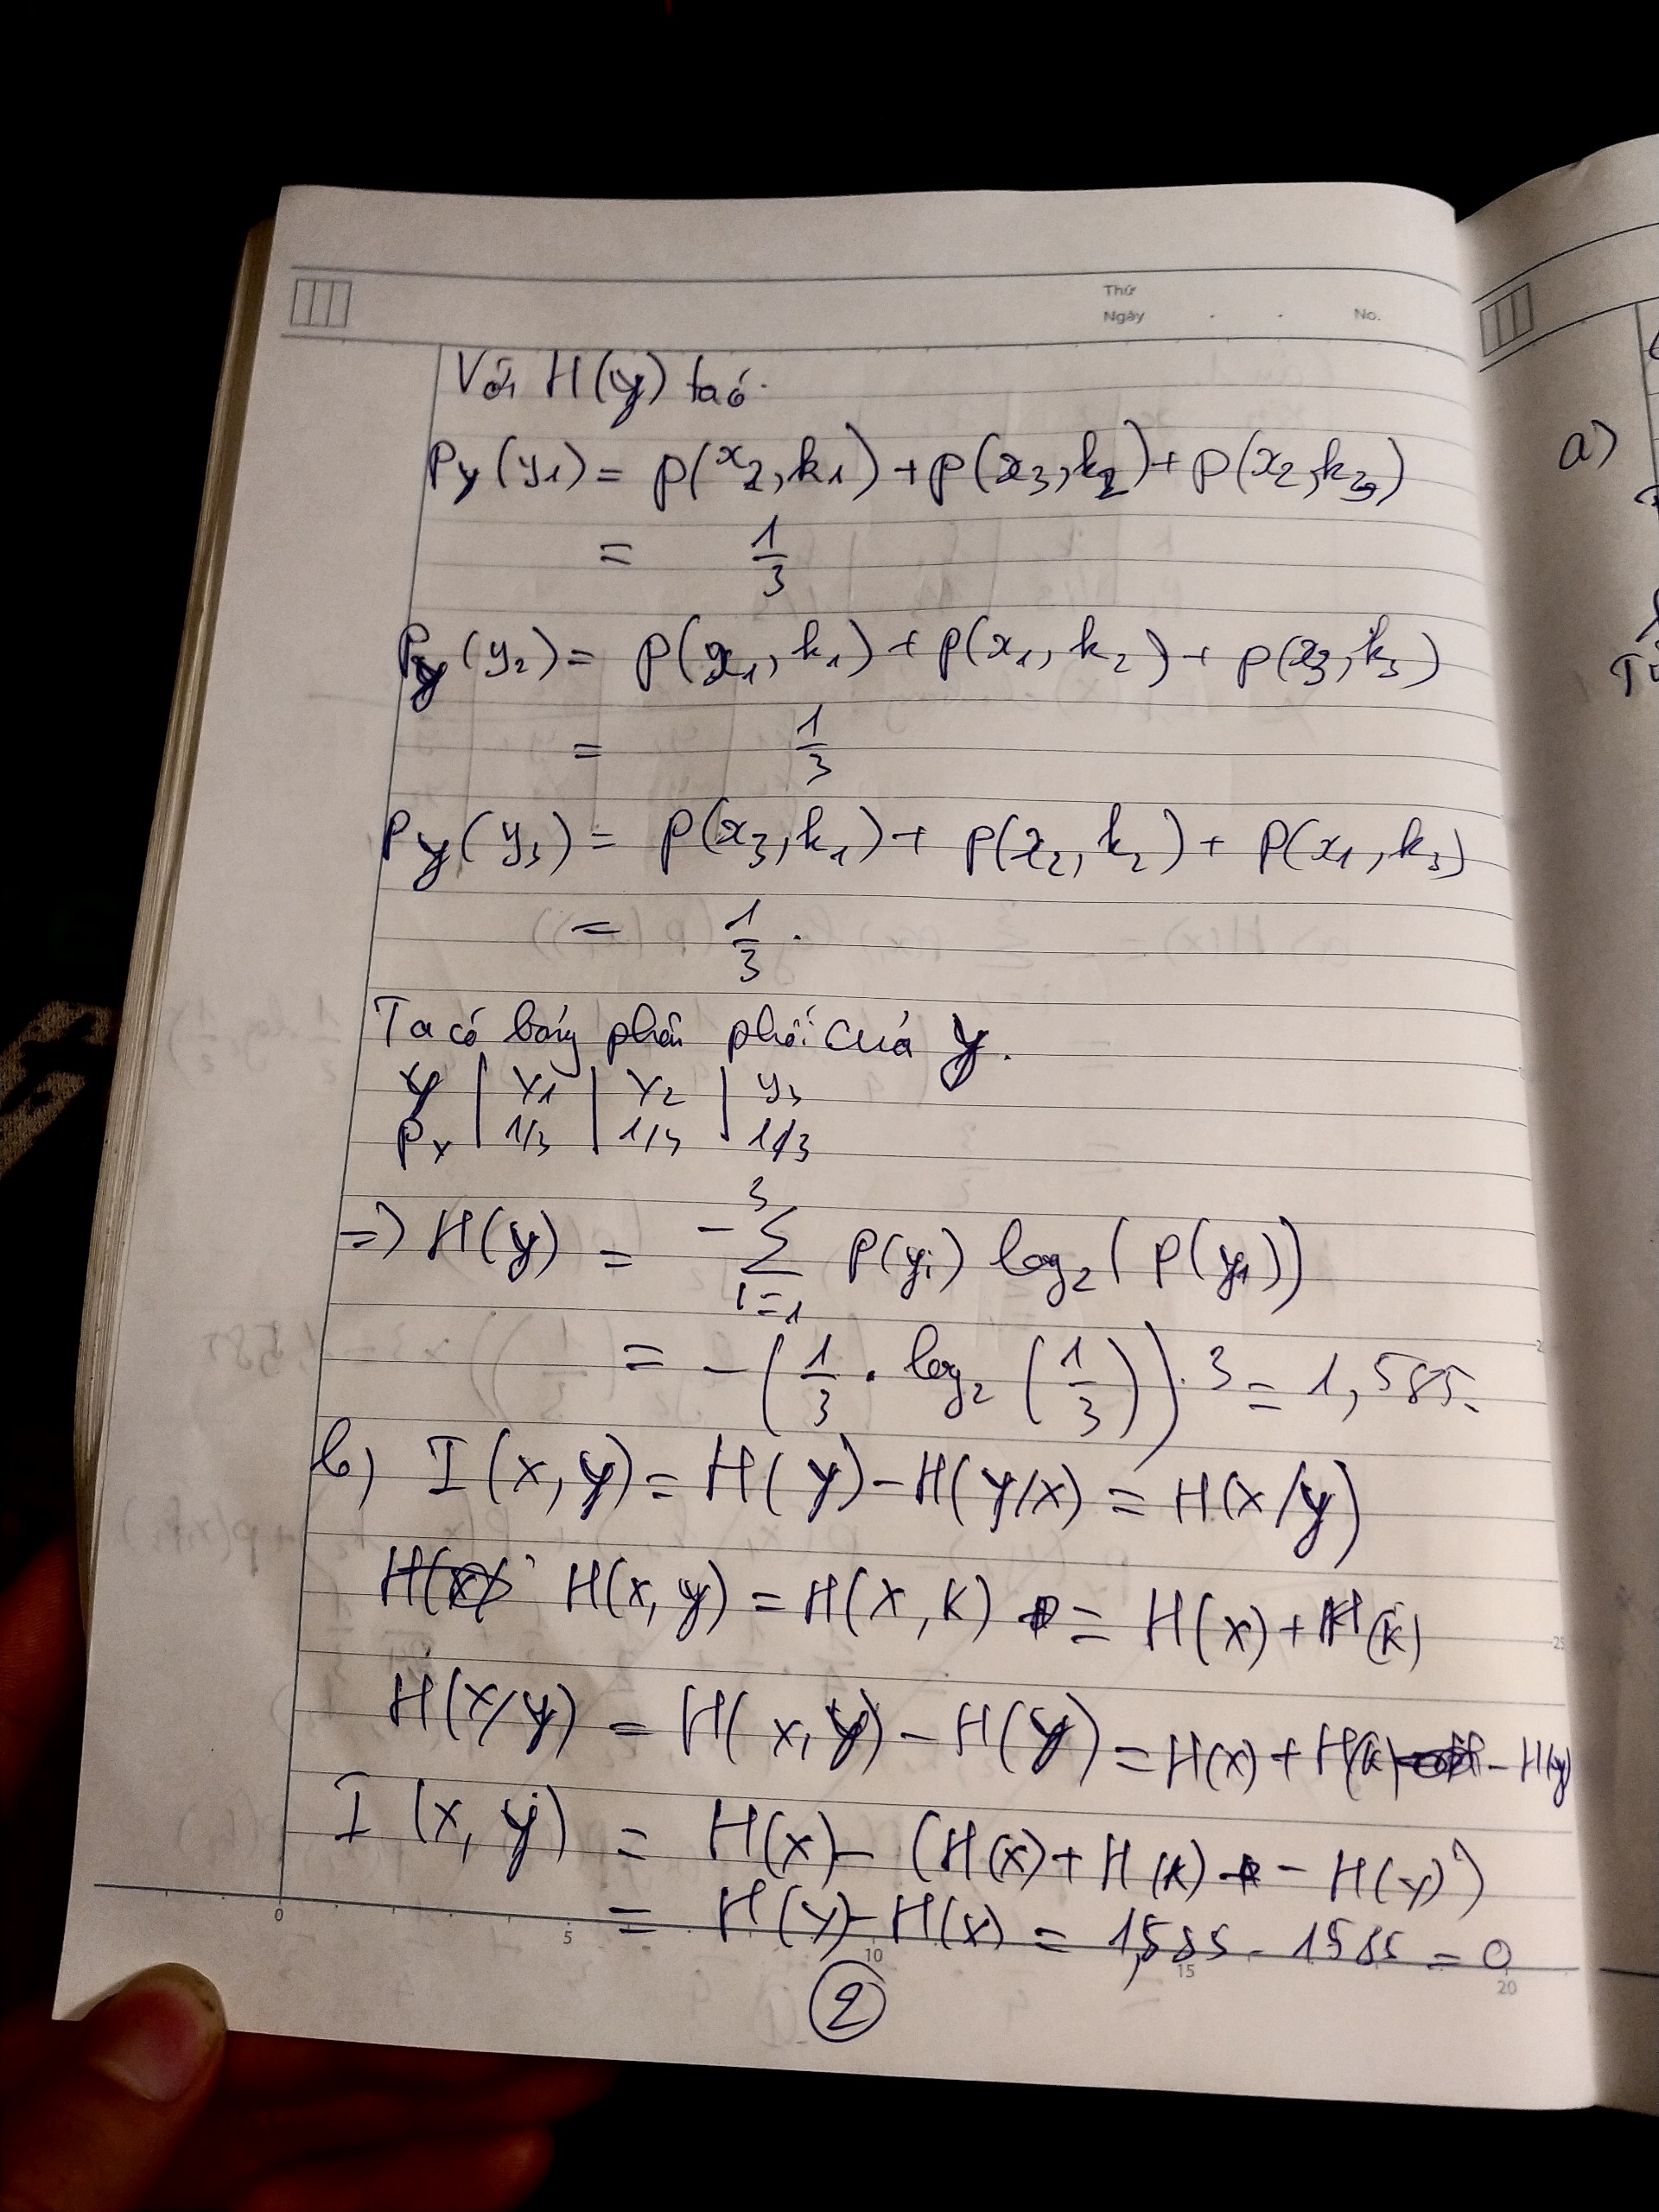 Thứ
Ngày . . No.
Với H(y) ta có
Py(y1) = p(x2,k1) + p(x3,k2) + p(x2,k3)
= 1/3
Py(y2) = p(x1,k1) + p(x1,k2) + p(x3,k3)
= 1/3
Py(y3) = p(x3,k1) + p(x2,k2) + p(x1,k3)
= 1/3.
Ta có bảng phân phối của y.
y | Y1 | Y2 | y3
Px | 1/3 | 1/3 | 1/3
=> H(y) = -∑ i=1 3 P(yi) log2(P(y1))
= -(1/3 . log2(1/3)).3 = 1,585.
b) I(x,y) = H(y) - H(y/x) = H(x/y)
H(x,y) = H(x,k) = H(x) + H(k)
H(x/y) = H(x,y) - H(y) = H(x) + H(k) - H(y)
I(x,y) = H(x) - (H(x) + H(k) - H(y))
= H(y) - H(x) = 1,585 - 1585 = 0
0 5 10 15 20
2
a)
25